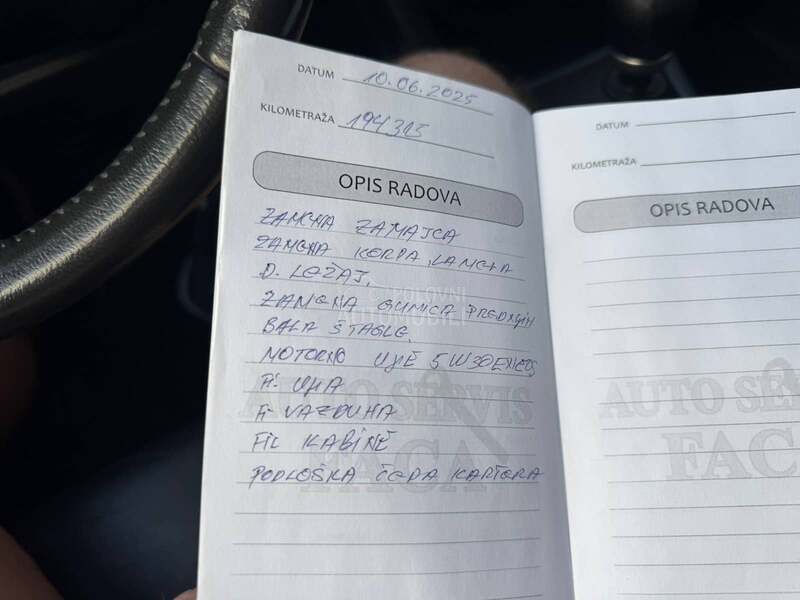 DATUM 10.06.2025
KILOMETRAŽA 194315
OPIS RADOVA
ZAMENA ZAMAJCA
ZAMENA KORPA, LAMELA
D. LEŽAJ,
ZAMENA GUMICA PREDNJIH
BALA ŠTAGLE.
MOTORNO ULJE 5W30
FI. ULJA
FI VAZDUHA
FIL KABINE
PODLOŠKA ČEPA KARTERA
POLOVNI
AUTOMOBILI
AUTO SERVIS
FACA
DATUM
KILOMETRAŽA
OPIS RADOVA
AUTO SE
FAC